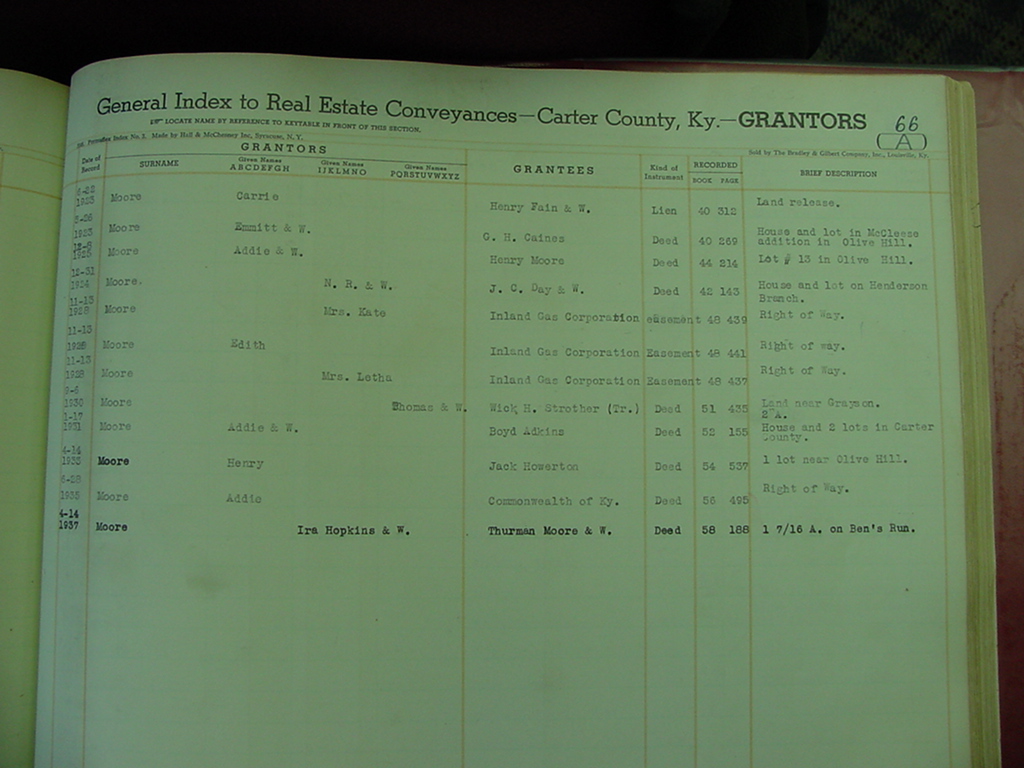 General Index to Real Estate Conveyances—Carter County, Ky.—GRANTORS 66
LOCATE NAME BY REFERENCE TO KEYTABLE IN FRONT OF THIS SECTION.
A
Index No. 2. Made by Hall & McChesney Inc, Syracuse, N. Y.
Sold by The Bradley & Gilbert Company, Inc., Louisville, Ky.
Date of Record
GRANTORS
SURNAME
Given Names ABCDEFGH
Given Names IJKLMNO
Given Names PQRSTUVWXYZ
GRANTEES
Kind of Instrument
RECORDED
BOOK PAGE
BRIEF DESCRIPTION
1923 Moore Carrie Henry Fain & W. Lien 40 312 Land release.
1923 Moore Emmitt & W. G. H. Caines Deed 40 269 House and lot in McCleese
addition in Olive Hill.
1925 Moore Addie & W. Henry Moore Deed 44 214 Lot # 13 in Olive Hill.
12-31
1924 Moore. N. R. & W. J. C. Day & W. Deed 42 143 House and lot on Henderson
Branch.
11-13
1928 Moore Mrs. Kate Inland Gas Corporation easement 48 439 Right of Way.
11-13
1928 Moore Edith Inland Gas Corporation Easement 48 441 Right of way.
11-13
1928 Moore Mrs. Letha Inland Gas Corporation Easement 48 437 Right of Way.
1930 Moore Thomas & W. Wick H. Strother (Tr.) Deed 51 435 Land near Grayson.
2 A.
1-17
1931 Moore Addie & W. Boyd Adkins Deed 52 155 House and 2 lots in Carter
County.
4-14
Moore Henry Jack Howerton Deed 54 537 1 lot near Olive Hill.
6-28
1935 Moore Addie Commonwealth of Ky. Deed 56 495 Right of Way.
4-14
1937 Moore Ira Hopkins & W. Thurman Moore & W. Deed 58 188 1 7/16 A. on Ben's Run.